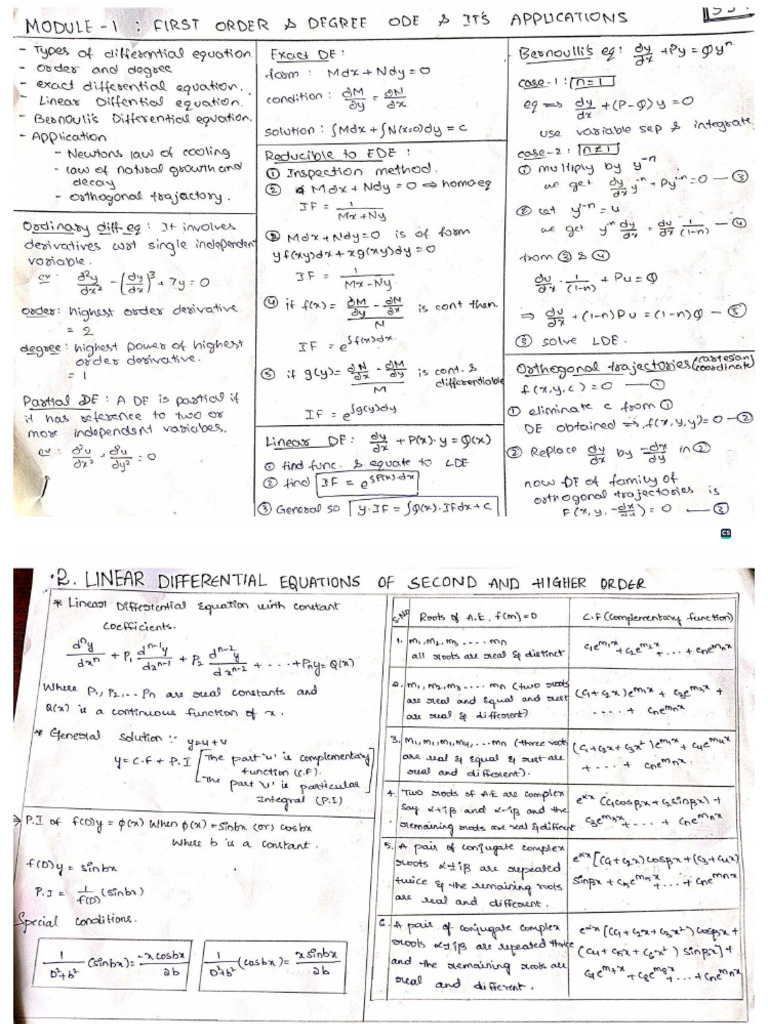 MODULE-1 : FIRST ORDER & DEGREE ODE & IT'S APPLICATIONS
- Types of differential equation
- order and degree
- exact differential equation.
- Linear Diffential equation.
- Bernouli's Differential equation.
- Application
- Newtons law of cooling
- law of natural growth and
decay
- orthogonal trajectory.
Ordinary diff eq : It involves
derivatives wrt single independent
variable.
ex: d²y/dx² - (dy/dx)³ + 7y = 0
order: highest order derivative
= 2
degree: highest power of highest
order derivative.
= 1
Partial DE : A DE is partial if
it has reference to two or
more independent variables.
ex: ∂²u/∂x² + ∂²u/∂y² = 0
Exact DE :
form : Mdx + Ndy = 0
condition : ∂M/∂y = ∂N/∂x
solution : ∫Mdx + ∫N(x=0)dy = c
Reducible to EDE :
① Inspection method.
② Mdx + Ndy = 0 ⇒ homo eq
IF = 1/(Mx + Ny)
③ Mdx + Ndy = 0 is of form
yf(xy)dx + xg(xy)dy = 0
IF = 1/(Mx - Ny)
④ if f(x) = (∂M/∂y - ∂N/∂x)/N is cont then
IF = e^∫f(x)dx
⑤ if g(y) = (∂N/∂x - ∂M/∂y)/M is cont. &
differentiable
IF = e^∫g(y)dy
Linear DE : dy/dx + P(x).y = Q(x)
① find func. & equate to LDE
② find IF = e^∫P(x)dx
③ General so y.IF = ∫Q(x).IFdx + c
Bernoulli's eq: dy/dx + Py = Qyⁿ
case-1 : n = 1
eq ⇒ dy/dx + (P-Q)y = 0
use variable sep & integrate
case-2 : n ≠ 1
① multiply by y⁻ⁿ
we get dy/dx y⁻ⁿ + Py¹⁻ⁿ = 0 - ③
② Let y¹⁻ⁿ = u
we get y⁻ⁿ dy/dx = du/dx 1/(1-n) - ④
from ③ & ④
du/dx . 1/(1-n) + Pu = Q
⇒ du/dx + (1-n)Pu = (1-n)Q - ⑤
③ solve LDE.
Orthogonal trajectories (cartesian coordinate)
f(x,y,c) = 0 - ①
① eliminate c from ①
DE obtained ⇒ f(x,y,y') = 0 - ②
② Replace dy/dx by -dx/dy in ②
now DE of family of
orthogonal trajectories is
F(x,y,-dx/dy) = 0 - ③
CS
2. LINEAR DIFFERENTIAL EQUATIONS OF SECOND AND HIGHER ORDER
* Linear Differential Equation with constant
coefficients.
dⁿy/dxⁿ + P₁ dⁿ⁻¹y/dxⁿ⁻¹ + P₂ dⁿ⁻²y/dxⁿ⁻² + .... + Pₙy = Q(x)
Where P₁, P₂,... Pn are real constants and
Q(x) is a continuous function of x.
* General solution :- y = u + v
y = C.F + P.I [The part 'u' is complementary
function (C.F).
The part 'v' is particular
Integral (P.I)
⇒ P.I of f(D)y = φ(x) When φ(x) = sinbx (or) cosbx
Where b is a constant.
f(D)y = sinbx
P.I = 1/f(D) (sinbx)
Special conditions.
1/(D²+b²) (sinbx) = -x cosbx/2b
1/(D²+b²) (cosbx) = x sinbx/2b
S.No Roots of A.E. f(m)=0 C.F (Complementary function)
1. m₁, m₂, m₃ ..... mn
all roots are real & distinct
c₁e^m₁x + c₂e^m₂x + ... + cne^mnx
2. m₁, m₁, m₃ ..... mn (two roots
are real and equal and rest
are real & different)
(c₁ + c₂x)e^m₁x + c₃e^m₃x +
..... + cne^mnx
3. m₁, m₁, m₁, m₄, ... mn (three roots
are real & equal & rest are
real and different).
(c₁ + c₂x + c₃x²)e^m₁x + c₄e^m₄x
+ ..... + cne^mnx
4. Two roots of A.E are complex
say α+iβ and α-iβ and the
remaining roots are real & different
e^αx (c₁cosβx + c₂sinβx) +
c₃e^m₃x + ... + cne^mnx
5. A pair of conjugate complex
roots α±iβ are repeated
twice & the remaining roots
are real and different.
e^αx [(c₁+c₂x)cosβx + (c₃+c₄x)
sinβx] + c₅e^m₅x + ... + cne^mnx
6. A pair of conjugate complex
roots α±iβ are repeated thrice
and the remaining roots are
real and different.
e^αx [(c₁ + c₂x + c₃x²) cosβx +
(c₄ + c₅x + c₆x²) sinβx] +
c₇e^m₇x + c₈e^m₈x + ... + cne^mnx